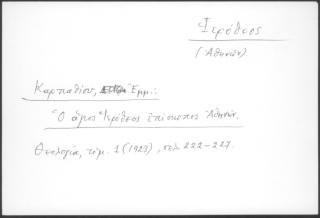 Ἱερόθεος
(Ἀθηνῶν)
Καρπαθίου, Ἐμμ.:
Ὁ ἅγιος Ἱερόθεος ἐπίσκοπος Ἀθηνῶν.
Θεολογία, τόμ. 1 (1923), σελ. 222-227.